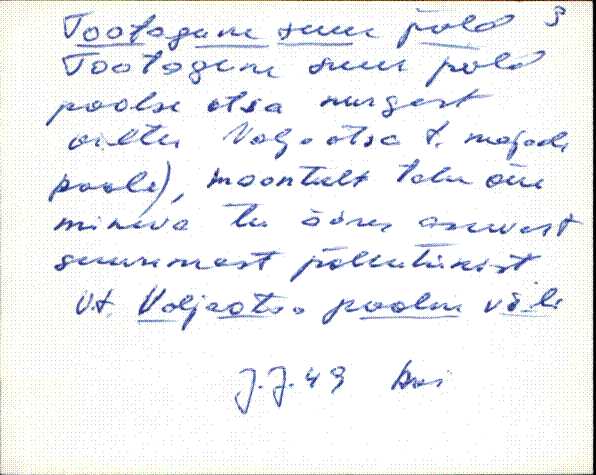 Tootagune suur põld
Tootagune suur põld
poolse otsa nurgest
Valjaotsa t. majade
poole), maantelt talu õue
mineva tee ääres asuvast
suuremast põllutükist
Vt. Valjaotsa poolne väli
J.J. 49